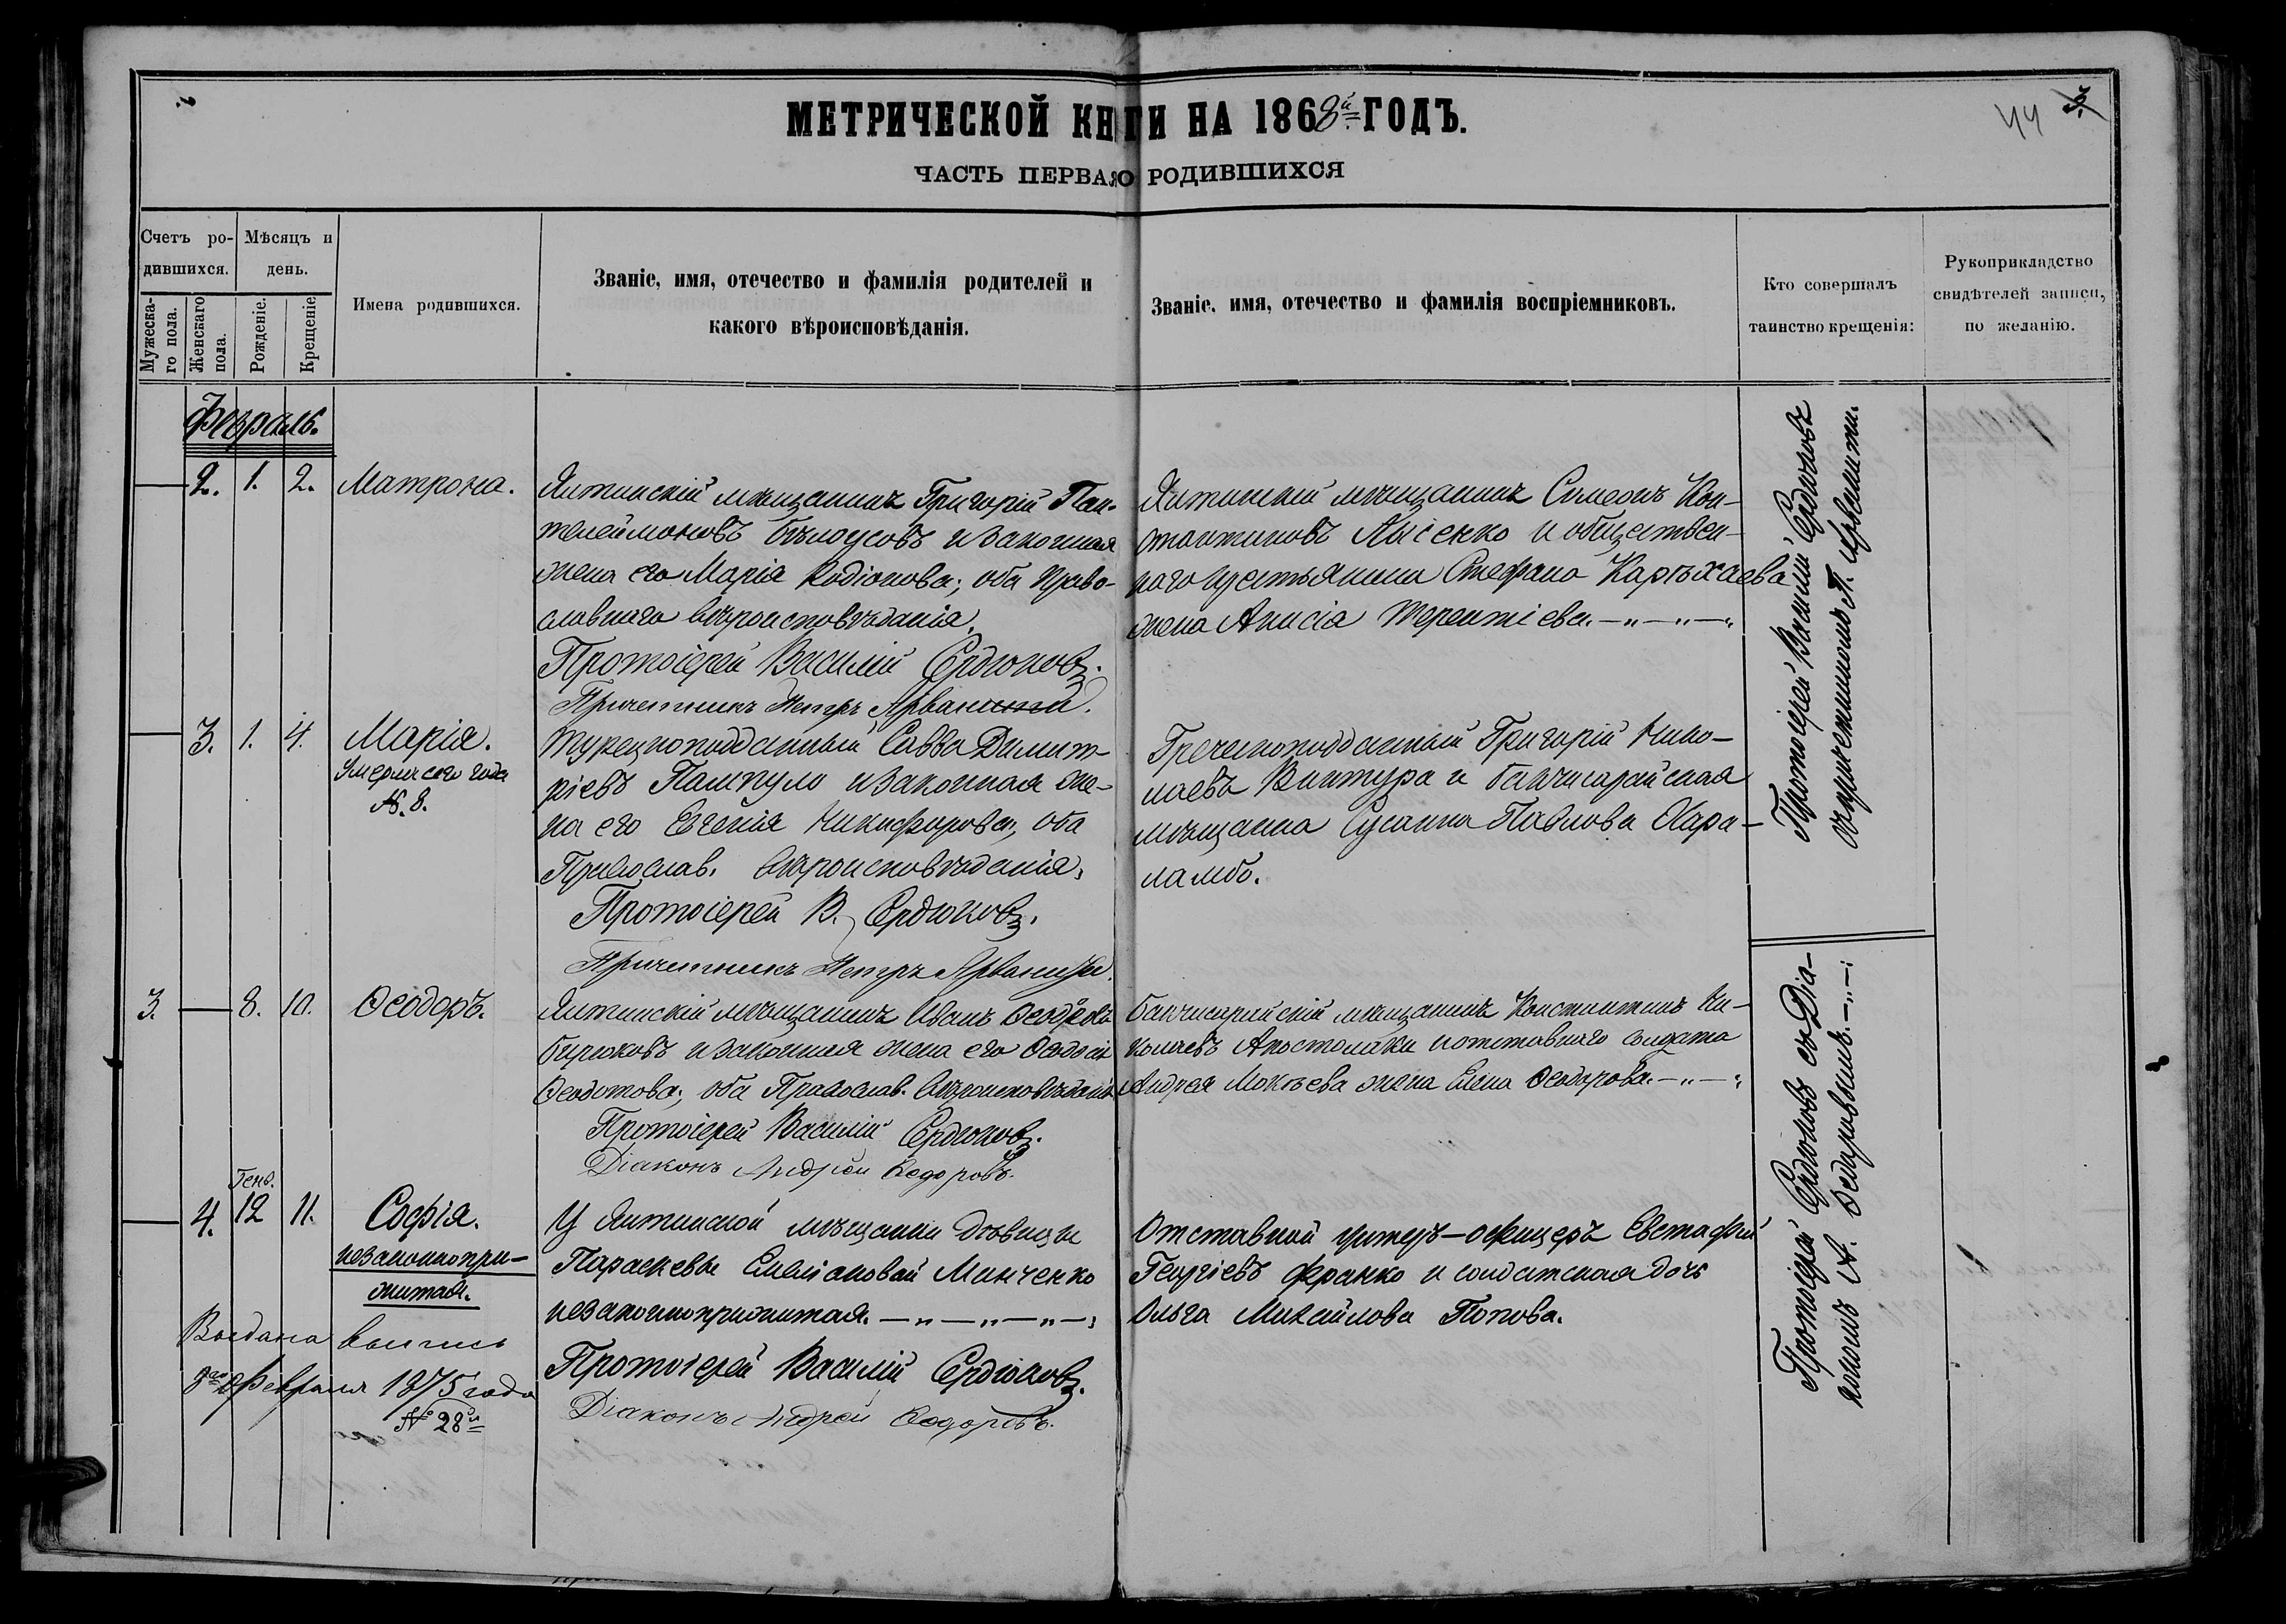 МЕТРИЧЕСКОЙ КНИГИ НА 1868й ГОДЪ.
44
ЧАСТЬ ПЕРВАЯ О РОДИВШИХСЯ
Счетъ ро-
дившихся.
Мужеска-
го пола.
Женскаго
пола.
Мѣсяцъ и
день.
Рожденіе.
Крещеніе
Имена родившихся.
Званіе, имя, отечество и фамилія родителей и
какого вѣроисповѣданія.
Званіе, имя, отечество и фамилія воспріемниковъ.
Кто совершалъ
таинство крещенія:
Рукоприкладство
свидѣтелей записи,
по желанію.
Февраль.
— 2. 1. 2. Матрона.
Ялтинскій мѣщанинъ Григорій Пан-
телеймоновъ Бѣлоусовъ и законная
жена его Марія Родіонова; оба Право-
славнаго вѣроисповѣданія.
Протоіерей Василій Сердюковъ.
Причетникъ Петръ
Ялтинскій мѣщанинъ Симеонъ Кон-
стантиновъ Лысенко и обществен-
наго крестьянина Стефана
жена Анисія Терентіева. —„—„—„
Протоіерей Василій Сердюковъ
съ причетникомъ П.
— 3. 1. 4. Марія.
Умерла сего года
№. 8.
Турецкоподданный Савва Димит-
ріевъ Пампуло и законная же-
на его Евгенія Никифорова, оба
Православ. вѣроисповѣданія.
Протоіерей В. Сердюковъ.
Причетникъ Петръ
Греческоподданный Григорій Нико-
лаевъ Винтура и бахчисарайская
мѣщанка Сусанна Павлова Хара-
ламбо.
3. — 8. 10. Ѳеодоръ.
Ялтинскій мѣщанинъ Иванъ Ѳеодоровъ
Бирюковъ и законная жена его Ѳеодосія
Ѳеодотова; оба Православ. вѣроисповѣданія
Протоіерей Василій Сердюковъ.
Діаконъ Андрей Ѳедоровъ.
Бахчисарайскій мѣщанинъ Константинъ Ни-
колаевъ Апостолаки и отставнаго солдата
Андрея Мокѣева жена Елена Ѳеодорова. —„—„
Протоіерей Сердюковъ съ Діа-
кономъ А. Ѳедоровымъ. —„—
Генв.
— 4. 12 11. Софія.
незаконнопри-
житая.
Выдана выпись
8го Февраля 1875 года
№ 28й
У Ялтинской мѣщанки дѣвицы
Параскевы Емеліановой Минченко
незаконноприжитая. —„—„—„—
Протоіерей Василій Сердюковъ.
Діаконъ Андрей Ѳедоровъ.
Отставной унтеръ-офицеръ Евстафій
Георгіевъ Франко и солдатская дочь
Ольга Михайлова Попова.